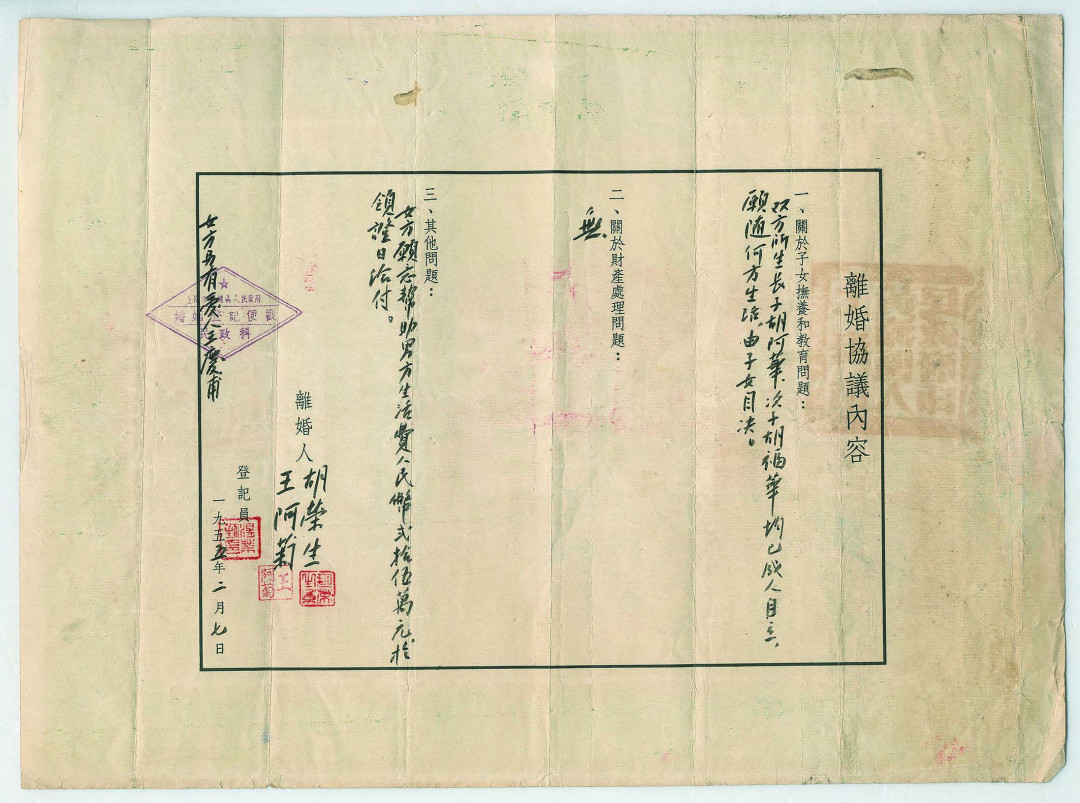 離婚協議內容
一、關於子女撫養和教育問題：
双方所生長子胡阿華次子胡福華均已成人自立、
願随何方生活、由子女自决。
二、關於財產處理問題：
無
三、其他問題：
女方願意幫助男方生活費人民幣弍拾伍萬元、於
領證日给付。
離婚人
胡榮生
王阿菊
登記員
一九五五年二月七日
女方另有愛人王慶甫
婚姻登記便
民政科